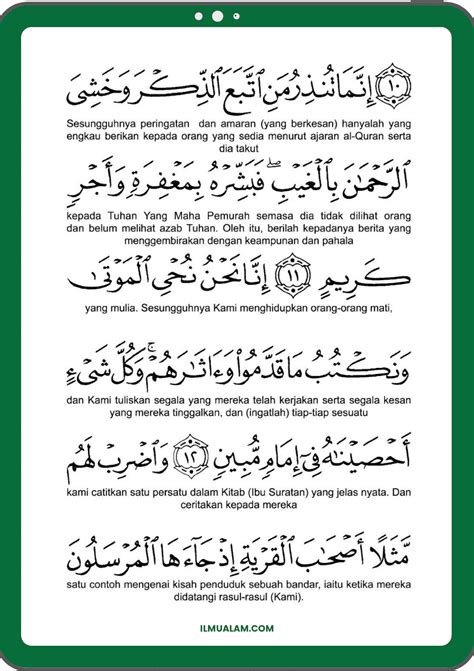 ١٠ إِنَّمَا تُنذِرُ مَنِ ٱتَّبَعَ ٱلذِّكْرَ وَخَشِيَ
Sesungguhnya peringatan dan amaran (yang berkesan) hanyalah yang
engkau berikan kepada orang yang sedia menurut ajaran al-Quran serta
dia takut
ٱلرَّحْمَٰنَ بِٱلْغَيْبِ ۖ فَبَشِّرْهُ بِمَغْفِرَةٍ وَأَجْرٍ
kepada Tuhan Yang Maha Pemurah semasa dia tidak dilihat orang
dan belum melihat azab Tuhan. Oleh itu, berilah kepadanya berita yang
menggembirakan dengan keampunan dan pahala
كَرِيمٍ ١١ إِنَّا نَحْنُ نُحْيِ ٱلْمَوْتَىٰ
yang mulia. Sesungguhnya Kami menghidupkan orang-orang mati,
وَنَكْتُبُ مَا قَدَّمُوا۟ وَءَاثَٰرَهُمْ ۚ وَكُلَّ شَىْءٍ
dan Kami tuliskan segala yang mereka telah kerjakan serta segala kesan
yang mereka tinggalkan, dan (ingatlah) tiap-tiap sesuatu
أَحْصَيْنَٰهُ فِىٓ إِمَامٍ مُّبِينٍ ١٢ وَٱضْرِبْ لَهُم
kami catitkan satu persatu dalam Kitab (Ibu Suratan) yang jelas nyata. Dan
ceritakan kepada mereka
مَّثَلًا أَصْحَٰبَ ٱلْقَرْيَةِ إِذْ جَآءَهَا ٱلْمُرْسَلُونَ
satu contoh mengenai kisah penduduk sebuah bandar, iaitu ketika mereka
didatangi rasul-rasul (Kami).
ILMUALAM.COM